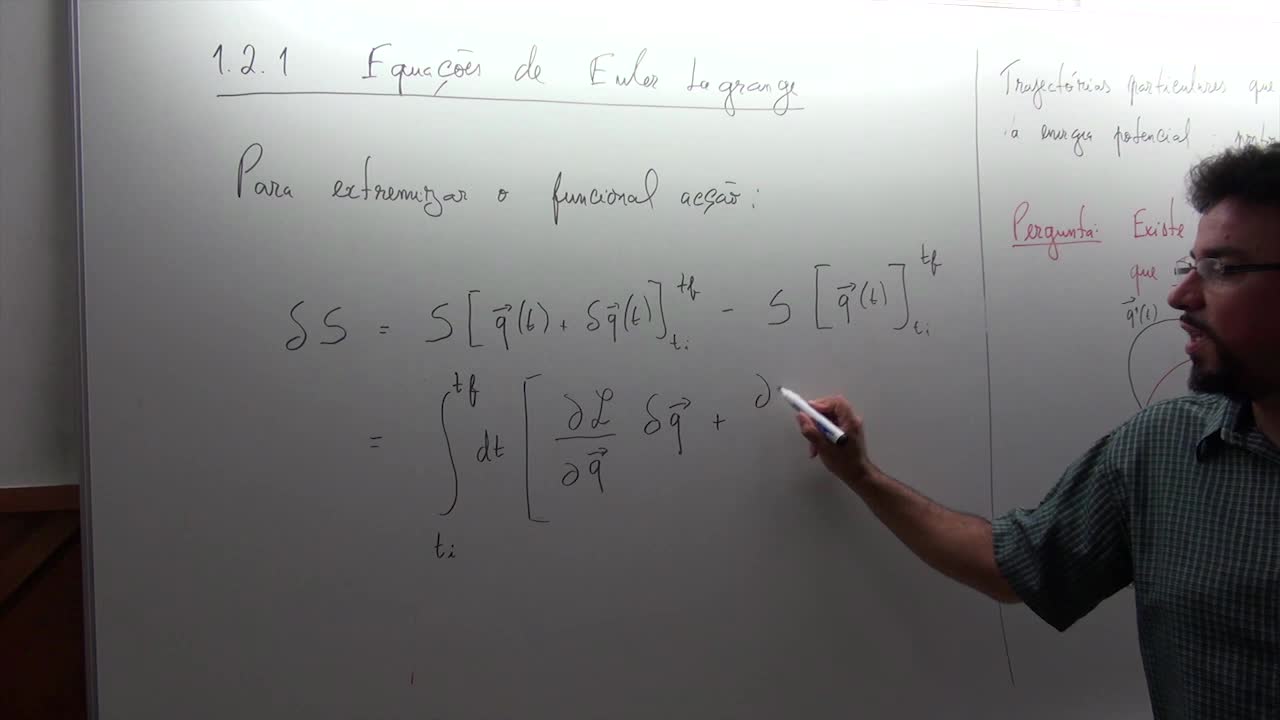 1.2.1 Equações de Euler Lagrange
Para extremizar o funcional acção:
δS = S[q⃗(t) + δq⃗(t)]_{t_i}^{t_f} - S[q⃗(t)]_{t_i}^{t_f}
= ∫_{t_i}^{t_f} dt [ ∂ℒ/∂q⃗ δq⃗ + ∂
Trajectórias particulares que
à energia potencial :
Pergunta: Existe
que
q⃗'(t)